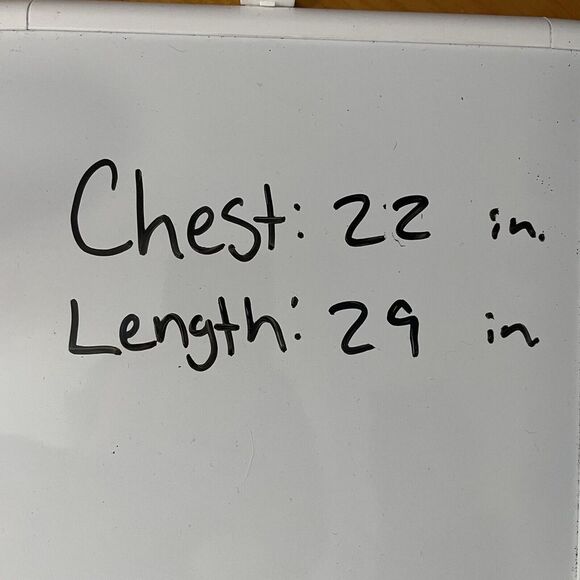 Chest: 22 in.
Length: 29 in